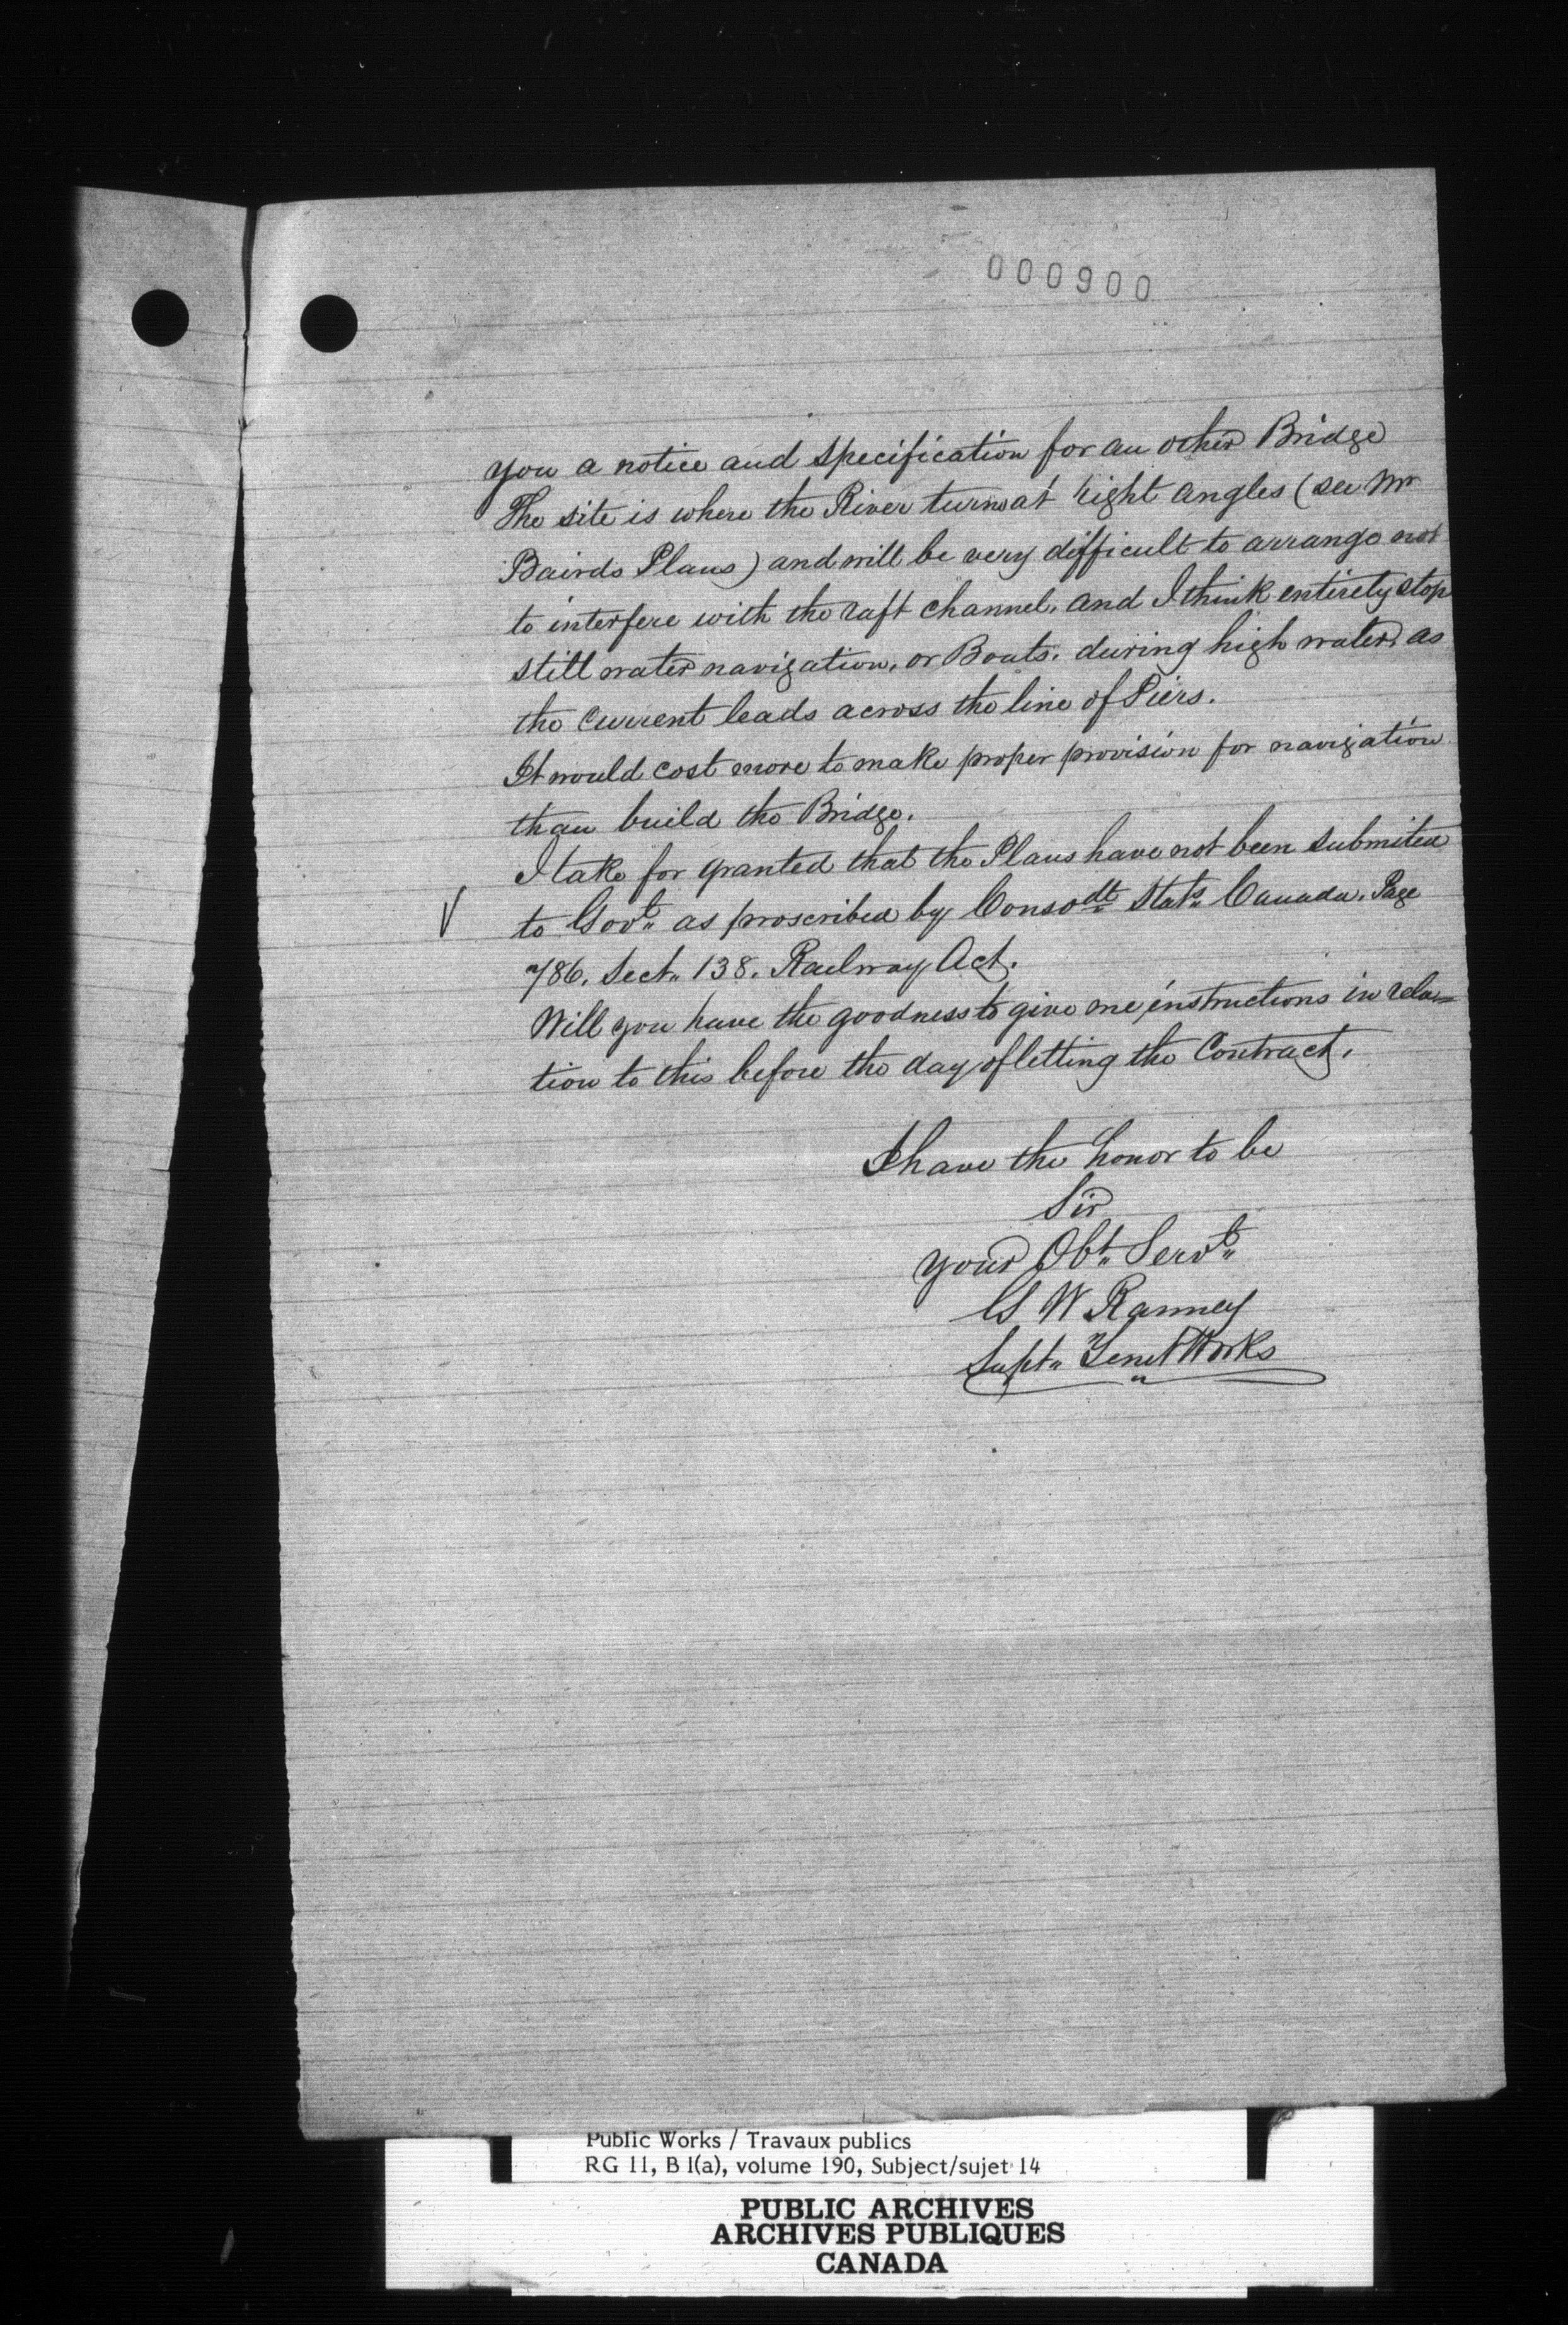 000900
you a notice and specification for an other Bridge
The site is where the River turns at right angles (see Mr
Bairds Plans) and will be very difficult to arrange not
to interfere with the raft channel. and I think entirely stop
still water navigation, or Boats. during high water, as
the current leads across the line of Piers.
It would cost more to make proper provision for navigation
than build the Bridge.
I take for granted that the Plans have not been submited
to Govt. as proscribed by Consodt. Stats. Canada. Page
786. Sect. 138. Railway Act.
Will you have the goodness to give me instructions in rela=
tion to this before the day of letting the Contract.
I have the honor to be
Sir
your Obt. Servt.
G W Ranney
Supt. Tent Works
Public Works / Travaux publics
RG 11, B 1(a), volume 190, Subject/sujet 14
PUBLIC ARCHIVES
ARCHIVES PUBLIQUES
CANADA